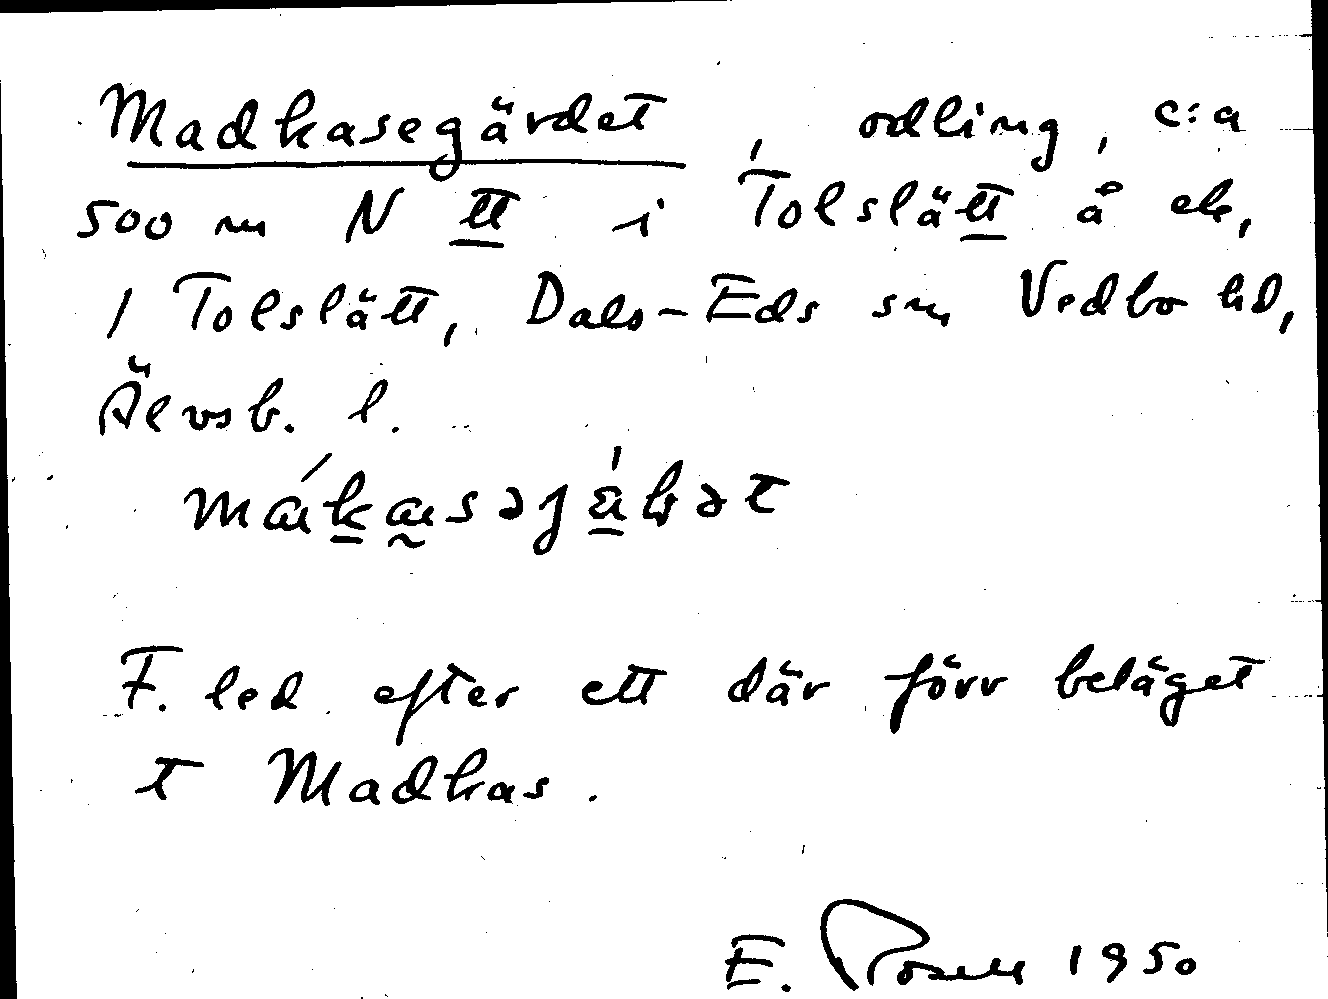 Madkasegärdet, odling, c:a
500 m N tt i Tolslätt å ek,
1 Tolslätt, Dals-Eds sn Vedbo hd,
Älvsb. l.
F. led efter ett där förr beläget
t Madkas.
E. Rosell 1950